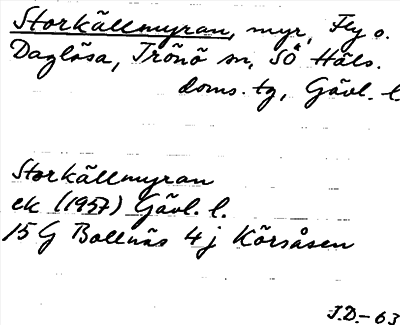 Storkällmyran, myr, Fly o.
Daglösa, Trönö sn, SÖ Häls.
doms. tg, Gävl. l.
Storkällmyran
ek (1957) Gävl. l.
15 G Bollnäs 4 j Körsåsen
J.D.-63